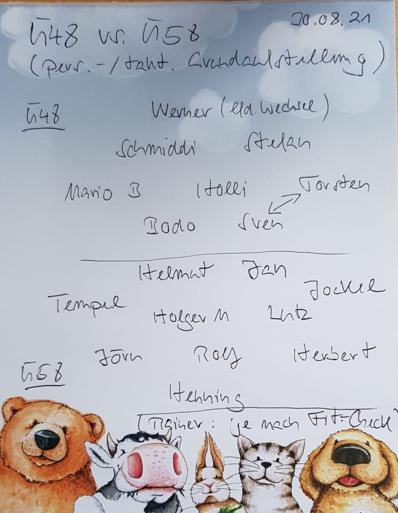 20.08.21
Ü48 vs. Ü58
(pers.-/takt. Grundaufstellung)
Ü48
Werner (ggf. Wechsel)
Schmiddi Stefan
Mario B Holli Torsten
Bodo Sven
Helmut Jan
Tempel Jockel
Holger M Lutz
Jörn Rolf Herbert
Ü58
Henning
(Rainer: je nach Fit-Check)